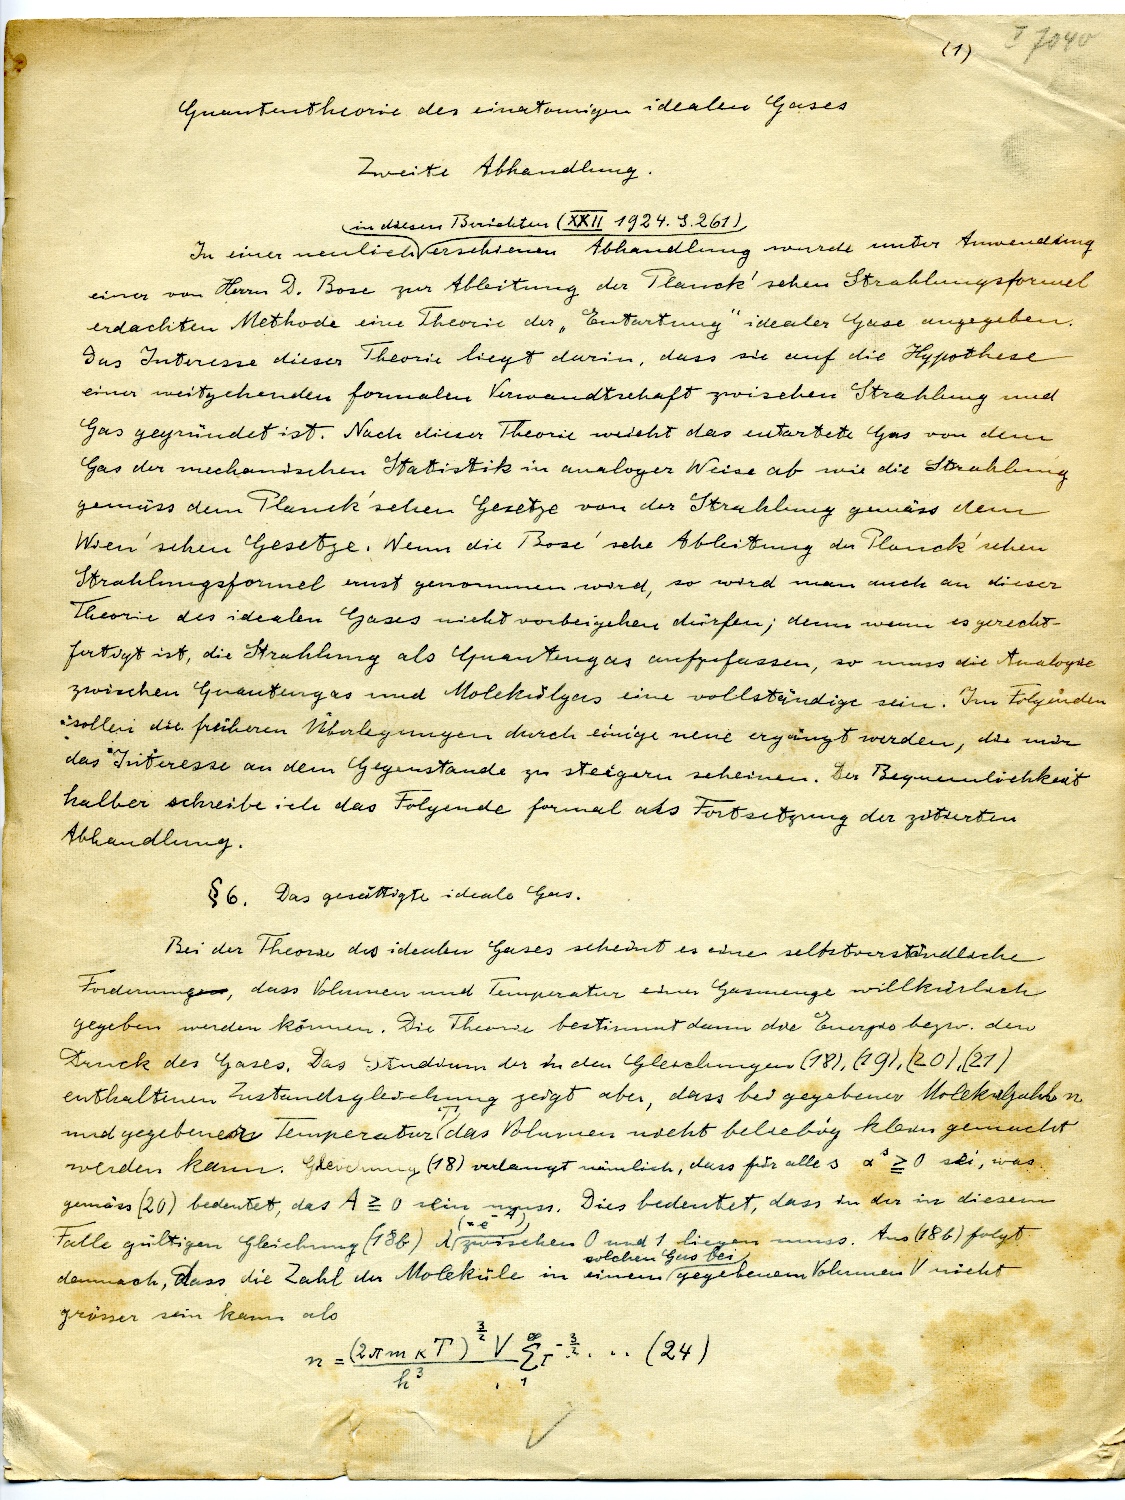 (1) I 7040
Quantentheorie des einatomigen idealen Gases
Zweite Abhandlung.
in diesen Berichten (XXII 1924. S. 261)
In einer neulich erschienen Abhandlung wurde unter Anwendung
einer von Herrn D. Bose zur Ableitung der Planck'schen Strahlungsformel
erdachten Methode eine Theorie der „Entartung" idealer Gase angegeben.
Das Interesse dieser Theorie liegt darin, dass sie auf die Hypothese
einer weitgehenden formalen Verwandtschaft zwischen Strahlung und
Gas gegründet ist. Nach dieser Theorie weicht das entartete Gas von dem
Gas der mechanischen Statistik in analoger Weise ab wie die Strahlung
gemäss dem Planck'schen Gesetze von der Strahlung gemäss dem
Wien'schen Gesetze. Wenn die Bose'sche Ableitung der Planck'schen
Strahlungsformel ernst genommen wird, so wird man auch an dieser
Theorie des idealen Gases nicht vorbeigehen dürfen; denn wenn es gerecht-
fertigt ist, die Strahlung als Quantengas aufzufassen, so muss die Analogie
zwischen Quantengas und Molekülgas eine vollständige sein. Im Folgenden
sollen die früheren Überlegungen durch einige neue ergänzt werden, die mir
das Interesse an dem Gegenstande zu steigern scheinen. Der Bequemlichkeit
halber schreibe ich das Folgende formal als Fortsetzung der zitierten
Abhandlung.
§ 6. Das gesättigte ideale Gas.
Bei der Theorie des idealen Gases scheint es eine selbstverständliche
Forderung, dass Volumen und Temperatur einer Gasmenge willkürlich
gegeben werden können. Die Theorie bestimmt dann die Energie bezw. den
Druck des Gases. Das Studium der in den Gleichungen (18), (19), (20), (21)
enthaltenen Zustandsgleichung zeigt aber, dass bei gegebener Molekülzahl n
und gegebener Temperatur T das Volumen nicht beliebig klein gemacht
werden kann. Gleichung (18) verlangt nämlich, dass für alle s αˢ ≧ 0 sei, was
gemäss (20) bedeutet, das A ≧ 0 sein muss. Dies bedeutet, dass in der in diesem
Falle gültigen Gleichung (18b) λ (= e⁻ᴬ) zwischen 0 und 1 liegen muss. Aus (18b) folgt
demnach, dass die Zahl der Moleküle in einem solchen Gas bei gegebenem Volumen V nicht
grösser sein kann als
n = (2πmκT)^{3/2} V / h³ ∑_1^∞ τ^{-3/2} . . . (24)